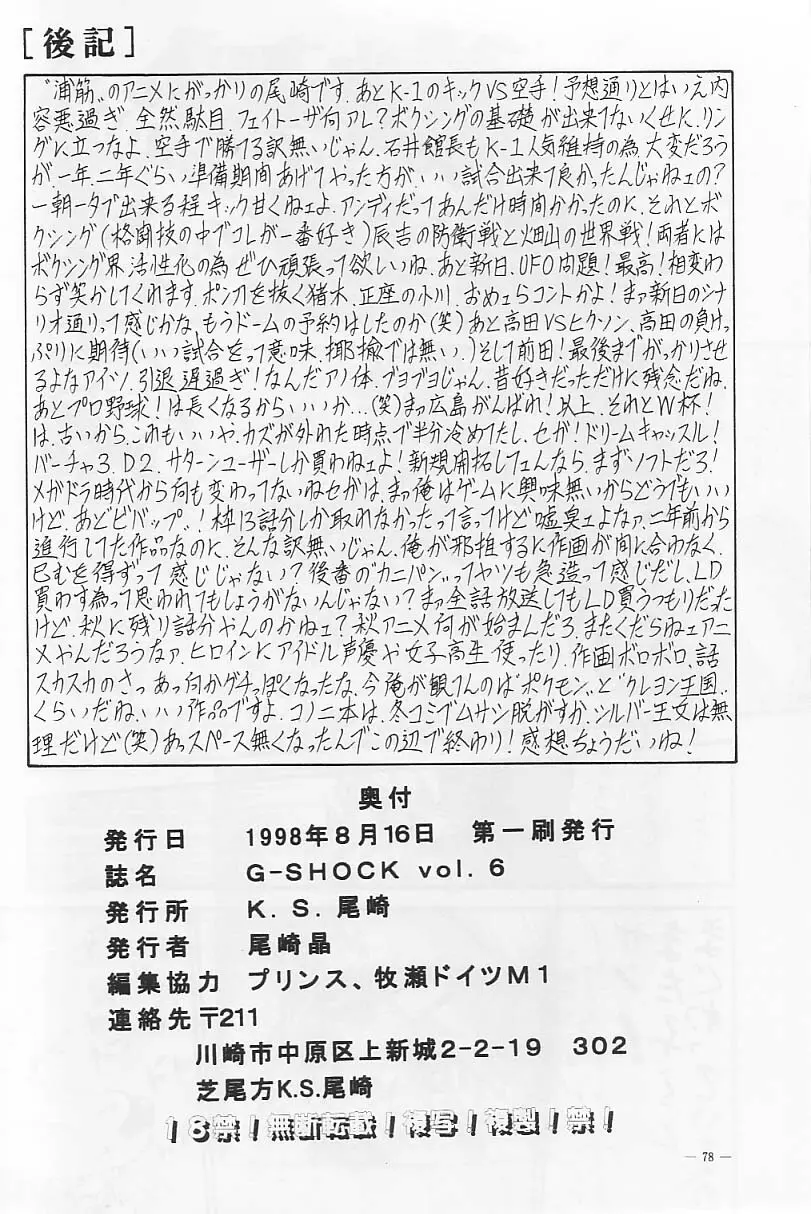 [後記]
〝浦筋〟のアニメにがっかりの尾崎です.あとK-1のキックVS空手!予想通りとはいえ内
容悪過ぎ.全然駄目.フェイトーザ何アレ?ボクシングの基礎が出来てないくせに.リン
グに立つなよ.空手で勝てる訳無いじゃん.石井館長もK-1人気維持の為.大変だろう
が.一年.二年ぐらい準備期間あげてやった方が.いい試合出来て良かったんじゃねェの?
一朝一夕で出来る程キック甘くねェよ.アンディだってあんだけ時間かかったのに.それとボ
クシング(格闘技の中でコレが一番好き)辰吉の防衛戦と畑山の世界戦!両者には
ボクシング界活性化の為ぜひ頑張って欲しいね.あと新日.UFO問題!最高!相変わ
らず笑かしてくれます.ポン刀を抜く猪木.正座の小川.おめェらコントかよ!まァ新日のシナ
リオ通りって感じかな.もうドームの予約はしたのか(笑)あと高田VSヒクソン.高田の負けっ
ぷりに期待(いい試合をって意味.揶揄では無い.)そして前田!最後までがっかりさせ
るよなアイツ.引退遅過ぎ!なんだアノ体.ブヨブヨじゃん.昔好きだっただけに残念だね.
あとプロ野球!は長くなるからいいか…(笑)まっ広島がんばれ!以上.それとW杯!
は.古いから.これもいいや.カズが外れた時点で半分冷めてたし.セガ!ドリームキャッスル!
バーチャ3.D2.サターンユーザーしか買わねェよ!新規開拓してェんなら.まずソフトだろ!
メガドラ時代から何も変わってないねセガは.まっ俺はゲームに興味無いからどうでもいい
けど.あとビバップ!枠13話分しか取れなかったって言ってけど嘘臭ェよなァ.二年前から
進行してた作品なのに.そんな訳無いじゃん.俺が邪推するに作画が間に合わなく.
已むを得ずって感じじゃない?後番の〝カニパン〟ってヤツも急造って感じだし.LD
買わす為って思われてもしょうがないんじゃない?まっ全話放送してもLD買うつもりだった
けど.秋に残り話分やんのかねェ?秋アニメ何が始まんだろ.またくだらねェアニ
メやんだろうなァ.ヒロインにアイドル声優や女子高生使ったり.作画ボロボロ.話
スカスカのさっ.あっ何かグチっぽくなったな.今俺が観てんのは〝ポケモン〟と〝クレヨン王国〟
くらいだね.いい作品ですよ.コノ二本は.冬コミでムサシ脱がすか.シルバー王女は無
理だけど(笑)あっスペース無くなったんでこの辺で終わり!感想ちょうだいね!
奥付
発行日 1998年8月16日 第一刷発行
誌名 G-SHOCK vol.6
発行所 K.S.尾崎
発行者 尾崎晶
編集協力 プリンス、牧瀬ドイツM1
連絡先〒211
川崎市中原区上新城2-2-19 302
芝尾方K.S.尾崎
18禁!無断転載!複写!複製!禁!
— 78 —